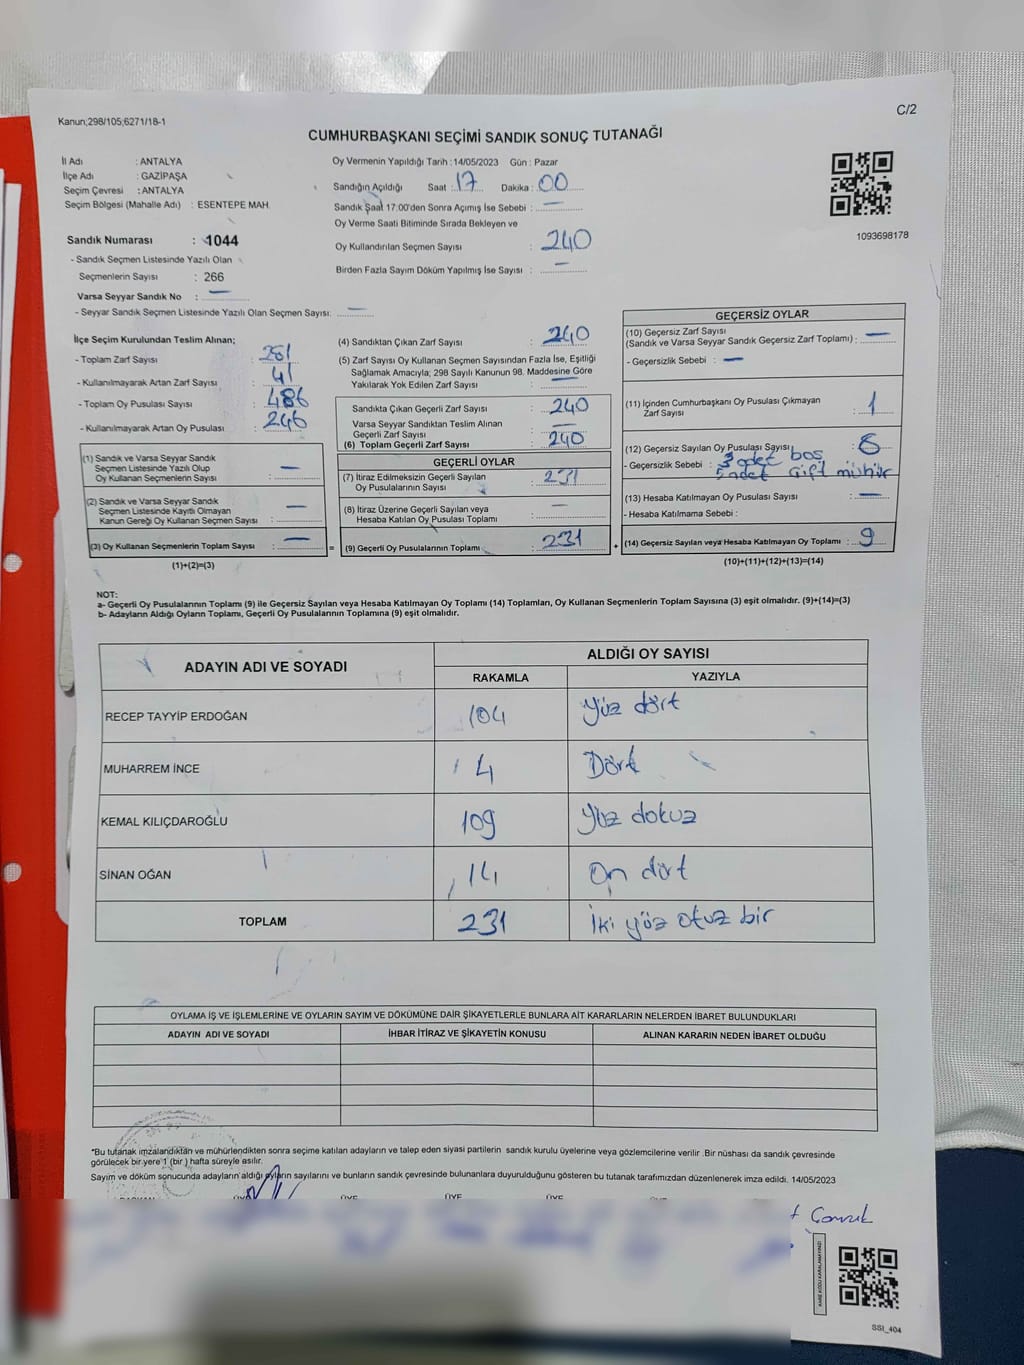 C/2
Kanun;298/105;6271/18-1
CUMHURBAŞKANI SEÇİMİ SANDIK SONUÇ TUTANAĞI
İl Adı : ANTALYA
İlçe Adı : GAZİPAŞA
Seçim Çevresi : ANTALYA
Seçim Bölgesi (Mahalle Adı) : ESENTEPE MAH.
Sandık Numarası : 1044
- Sandık Seçmen Listesinde Yazılı Olan
Seçmenlerin Sayısı : 266
Varsa Seyyar Sandık No : —
- Seyyar Sandık Seçmen Listesinde Yazılı Olan Seçmen Sayısı: —
Oy Vermenin Yapıldığı Tarih : 14/05/2023 Gün : Pazar
Sandığın Açıldığı Saat : 17 Dakika : 00
Sandık Saat 17:00'den Sonra Açımış İse Sebebi : —
Oy Verme Saati Bitiminde Sırada Bekleyen ve
Oy Kullandırılan Seçmen Sayısı : 240
Birden Fazla Sayım Döküm Yapılmış İse Sayısı : —
1093698178
İlçe Seçim Kurulundan Teslim Alınan;
- Toplam Zarf Sayısı : 281
- Kullanılmayarak Artan Zarf Sayısı : 41
- Toplam Oy Pusulası Sayısı : 486
- Kullanılmayarak Artan Oy Pusulası : 246
(1) Sandık ve Varsa Seyyar Sandık
Seçmen Listesinde Yazılı Olup
Oy Kullanan Seçmenlerin Sayısı : —
(2) Sandık ve Varsa Seyyar Sandık
Seçmen Listesinde Kayıtlı Olmayan
Kanun Gereği Oy Kullanan Seçmen Sayısı : —
(3) Oy Kullanan Seçmenlerin Toplam Sayısı : — =
(1)+(2)=(3)
(4) Sandıktan Çıkan Zarf Sayısı : 240
(5) Zarf Sayısı Oy Kullanan Seçmen Sayısından Fazla İse, Eşitliği
Sağlamak Amacıyla; 298 Sayılı Kanunun 98. Maddesine Göre
Yakılarak Yok Edilen Zarf Sayısı : —
Sandıkta Çıkan Geçerli Zarf Sayısı : 240
Varsa Seyyar Sandıktan Teslim Alınan
Geçerli Zarf Sayısı : —
(6) Toplam Geçerli Zarf Sayısı : 240
GEÇERLİ OYLAR
(7) İtiraz Edilmeksizin Geçerli Sayılan
Oy Pusulalarının Sayısı : 231
(8) İtiraz Üzerine Geçerli Sayılan veya
Hesaba Katılan Oy Pusulası Toplamı : —
(9) Geçerli Oy Pusulalarının Toplamı : 231 +
GEÇERSİZ OYLAR
(10) Geçersiz Zarf Sayısı
(Sandık ve Varsa Seyyar Sandık Geçersiz Zarf Toplamı) : —
- Geçersizlik Sebebi : —
(11) İçinden Cumhurbaşkanı Oy Pusulası Çıkmayan
Zarf Sayısı : 1
(12) Geçersiz Sayılan Oy Pusulası Sayısı : 8
- Geçersizlik Sebebi : 3 adet boş
5 adet Çift mühür
(13) Hesaba Katılmayan Oy Pusulası Sayısı : —
- Hesaba Katılmama Sebebi :
(14) Geçersiz Sayılan veya Hesaba Katılmayan Oy Toplamı : 9
(10)+(11)+(12)+(13)=(14)
NOT:
a- Geçerli Oy Pusulalarının Toplamı (9) ile Geçersiz Sayılan veya Hesaba Katılmayan Oy Toplamı (14) Toplamları, Oy Kullanan Seçmenlerin Toplam Sayısına (3) eşit olmalıdır. (9)+(14)=(3)
b- Adayların Aldığı Oyların Toplamı, Geçerli Oy Pusulalarının Toplamına (9) eşit olmalıdır.
ADAYIN ADI VE SOYADI ALDIĞI OY SAYISI
RAKAMLA YAZIYLA
RECEP TAYYİP ERDOĞAN 104 yüz dört
MUHARREM İNCE 4 Dört
KEMAL KILIÇDAROĞLU 109 yüz dokuz
SİNAN OĞAN 14 On dört
TOPLAM 231 İki yüz otuz bir
OYLAMA İŞ VE İŞLEMLERİNE VE OYLARIN SAYIM VE DÖKÜMÜNE DAİR ŞİKAYETLERLE BUNLARA AİT KARARLARIN NELERDEN İBARET BULUNDUKLARI
ADAYIN ADI VE SOYADI İHBAR İTİRAZ VE ŞİKAYETİN KONUSU ALINAN KARARIN NEDEN İBARET OLDUĞU
*Bu tutanak imzalandıktan ve mühürlendikten sonra seçime katılan adayların ve talep eden siyasi partilerin sandık kurulu üyelerine veya gözlemcilerine verilir .Bir nüshası da sandık çevresinde
görülecek bir yere 1 (bir ) hafta süreyle asılır.
Sayım ve döküm sonucunda adayların aldığı oyların sayılarını ve bunların sandık çevresinde bulunanlara duyurulduğunu gösteren bu tutanak tarafımızdan düzenlenerek imza edildi. 14/05/2023
ÜYE ÜYE ÜYE
KARE KODU KARALAMAYINIZ!
SSI_404